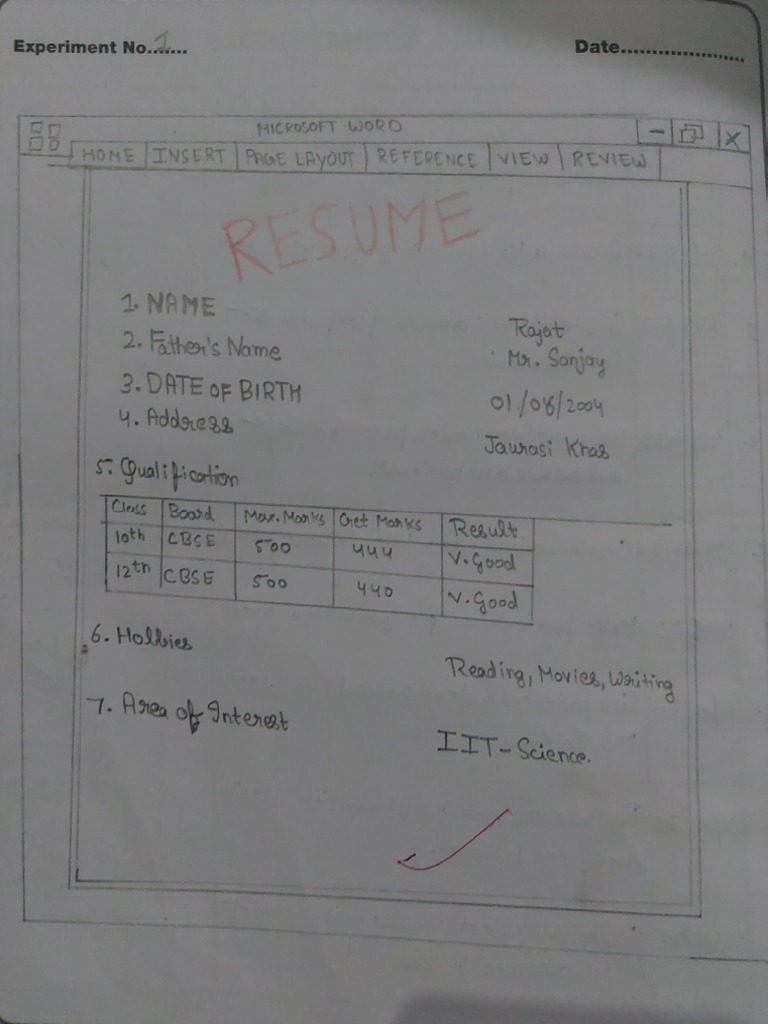 Experiment No. 1
Date
MICROSOFT WORD
HOME INSERT PAGE LAYOUT REFERENCE VIEW REVIEW
RESUME
1. NAME Rajat
2. Father's Name Mr. Sanjay
3. DATE OF BIRTH 01/08/2004
4. Address Jaurasi Khas
5. Qualification
Class Board Max. Marks Get Marks Result
10th CBSE 500 444 V. Good
12th CBSE 500 440 V. Good
6. Hobbies
Reading, Movies, Writing
7. Area of Interest
IIT-Science.